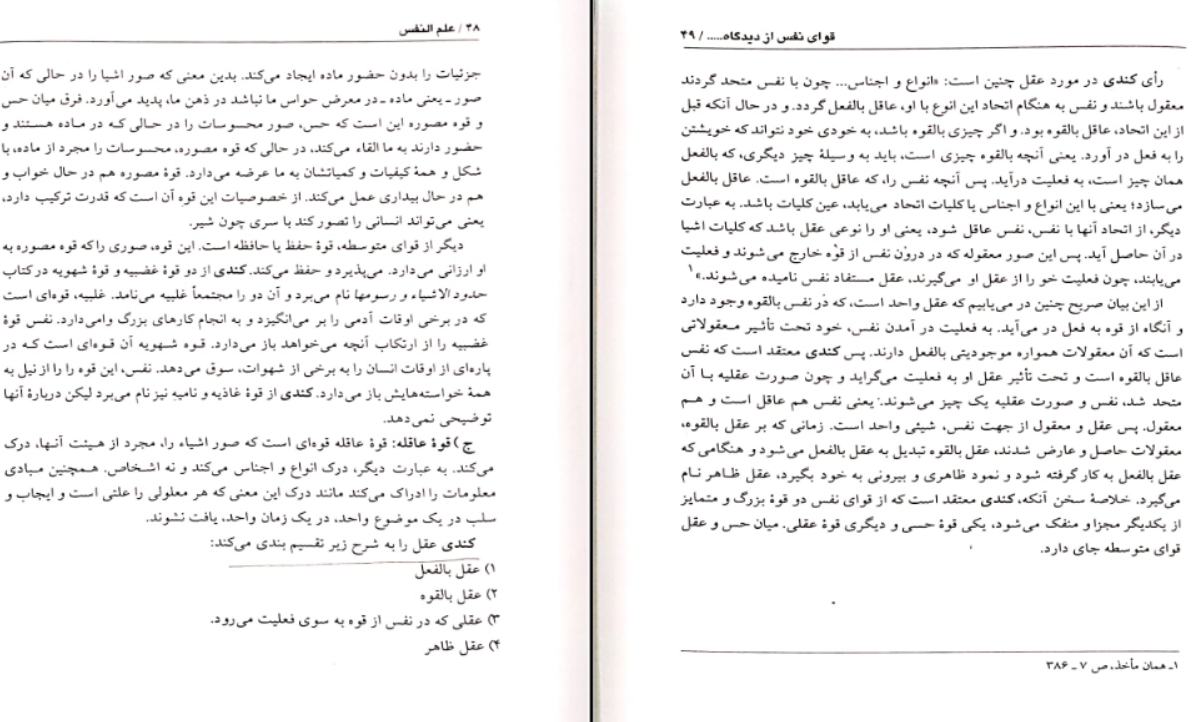 ۳۸ / علم النفس
جزئیات را بدون حضور ماده ایجاد می‌کند. بدین معنی که صور اشیا را در حالی که آن
صور ـ یعنی ماده ـ در معرض حواس ما نباشد در ذهن ما، پدید می‌آورد. فرق میان حس
و قوه مصوره این است که حس، صور محسوسات را در حالی کـه در مـاده هستند و
حضور دارند به ما القاء می‌کند، در حالی که قوه مصوره، محسوسات را مجرد از ماده، با
شکل و همهٔ کیفیات و کمیاتشان به ما عرضه می‌دارد. قوهٔ مصوره هم در حال خواب و
هم در حال بیداری عمل می‌کند. از خصوصیات این قوه آن است که قدرت ترکیب دارد،
یعنی می‌تواند انسانی را تصور کند با سری چون شیر.
دیگر از قوای متوسطه، قوهٔ حفظ یا حافظه است. این قوه، صوری را که قوه مصوره به
او ارزانی می‌دارد. می‌پذیرد و حفظ می‌کند. کندی از دو قوهٔ غضبیه و قوهٔ شهویه در کتاب
حدود الاشیاء و رسومها نام می‌برد و آن دو را مجتمعاً غلبیه می‌نامد. غلبیه، قوه‌ای است
که در برخی اوقات آدمی را بر می‌انگیزد و به انجام کارهای بزرگ وامی‌دارد. نفس قوهٔ
غضبیه را از ارتکاب آنچه می‌خواهد باز می‌دارد. قـوه شـهویه آن قـوه‌ای است کـه در
پاره‌ای از اوقات انسان را به برخی از شهوات، سوق می‌دهد. نفس، این قوه را را از نیل به
همهٔ خواسته‌هایش باز می‌دارد. کندی از قوهٔ غاذیه و نامیه نیز نام می‌برد لیکن دربارهٔ آنها
توضیحی نمی‌دهد.
ج) قوهٔ عاقله: قوهٔ عاقله قوه‌ای است که صور اشیاء را، مجرد از هـیئت آنـها، درک
می‌کند. به عبارت دیگر، درک انواع و اجناس می‌کند و نه اشـخاص. هـمچنین مـبادی
معلومات را ادراک می‌کند مانند درک این معنی که هر معلولی را علتی است و ایجاب و
سلب در یک موضوع واحد، در یک زمان واحد، یافت نشوند.
کندی عقل را به شرح زیر تقسیم بندی می‌کند:
۱) عقل بالفعل
۲) عقل بالقوه
۳) عقلی که در نفس از قوه به سوی فعلیت می‌رود.
۴) عقل ظاهر
قوای نفس از دیدگاه..... / ۳۹
رأی کندی در مورد عقل چنین است: «انواع و اجناس... چون با نفس متحد گردند
معقول باشند و نفس به هنگام اتحاد این انوع با او، عاقل بالفعل گردد. و در حال آنکه قبل
از این اتحاد، عاقل بالقوه بود. و اگر چیزی بالقوه باشد، به خودی خود نتواند که خویشتن
را به فعل در آورد. یعنی آنچه بالقوه چیزی است، باید به وسیلهٔ چیز دیگری، که بالفعل
همان چیز است، به فعلیت درآید. پس آنچه نفس را، که عاقل بالقوه است. عاقل بالفعل
می‌سازد؛ یعنی با این انواع و اجناس یا کلیات اتحاد می‌یابد، عین کلیات باشد. به عبارت
دیگر، از اتحاد آنها با نفس، نفس عاقل شود، یعنی او را نوعی عقل باشد که کلیات اشیا
در آن حاصل آید. پس این صور معقوله که در درون نفس از قوّه خارج می‌شوند و فعلیت
می‌یابند، چون فعلیت خو را از عقل او می‌گیرند، عقل مستفاد نفس نامیده می‌شوند.»۱
از این بیان صریح چنین در می‌یابیم که عقل واحد است، که در نفس بالقوه وجود دارد
و آنگاه از قوه به فعل در می‌آید. به فعلیت در آمدن نفس، خود تحت تأثیر مـعقولاتی
است که آن معقولات همواره موجودیتی بالفعل دارند. پس کندی معتقد است که نفس
عاقل بالقوه است و تحت تأثیر عقل او به فعلیت می‌گراید و چون صورت عقلیه بـا آن
متحد شد، نفس و صورت عقلیه یک چیز می‌شوند. یعنی نفس هم عاقل است و هـم
معقول. پس عقل و معقول از جهت نفس، شیئی واحد است. زمانی که بر عقل بالقوه،
معقولات حاصل و عارض شدند، عقل بالقوه تبدیل به عقل بالفعل می‌شود و هنگامی که
عقل بالفعل به کار گرفته شود و نمود ظاهری و بیرونی به خود بگیرد، عقل ظـاهر نـام
می‌گیرد. خلاصهٔ سخن آنکه، کندی معتقد است که از قوای نفس دو قوهٔ بزرگ و متمایز
از یکدیگر مجزا و منفک می‌شود، یکی قوهٔ حسی و دیگری قوهٔ عقلی. میان حس و عقل
قوای متوسطه جای دارد.
۱ـ همان مأخذ، ص ۷ ـ ۳۸۶